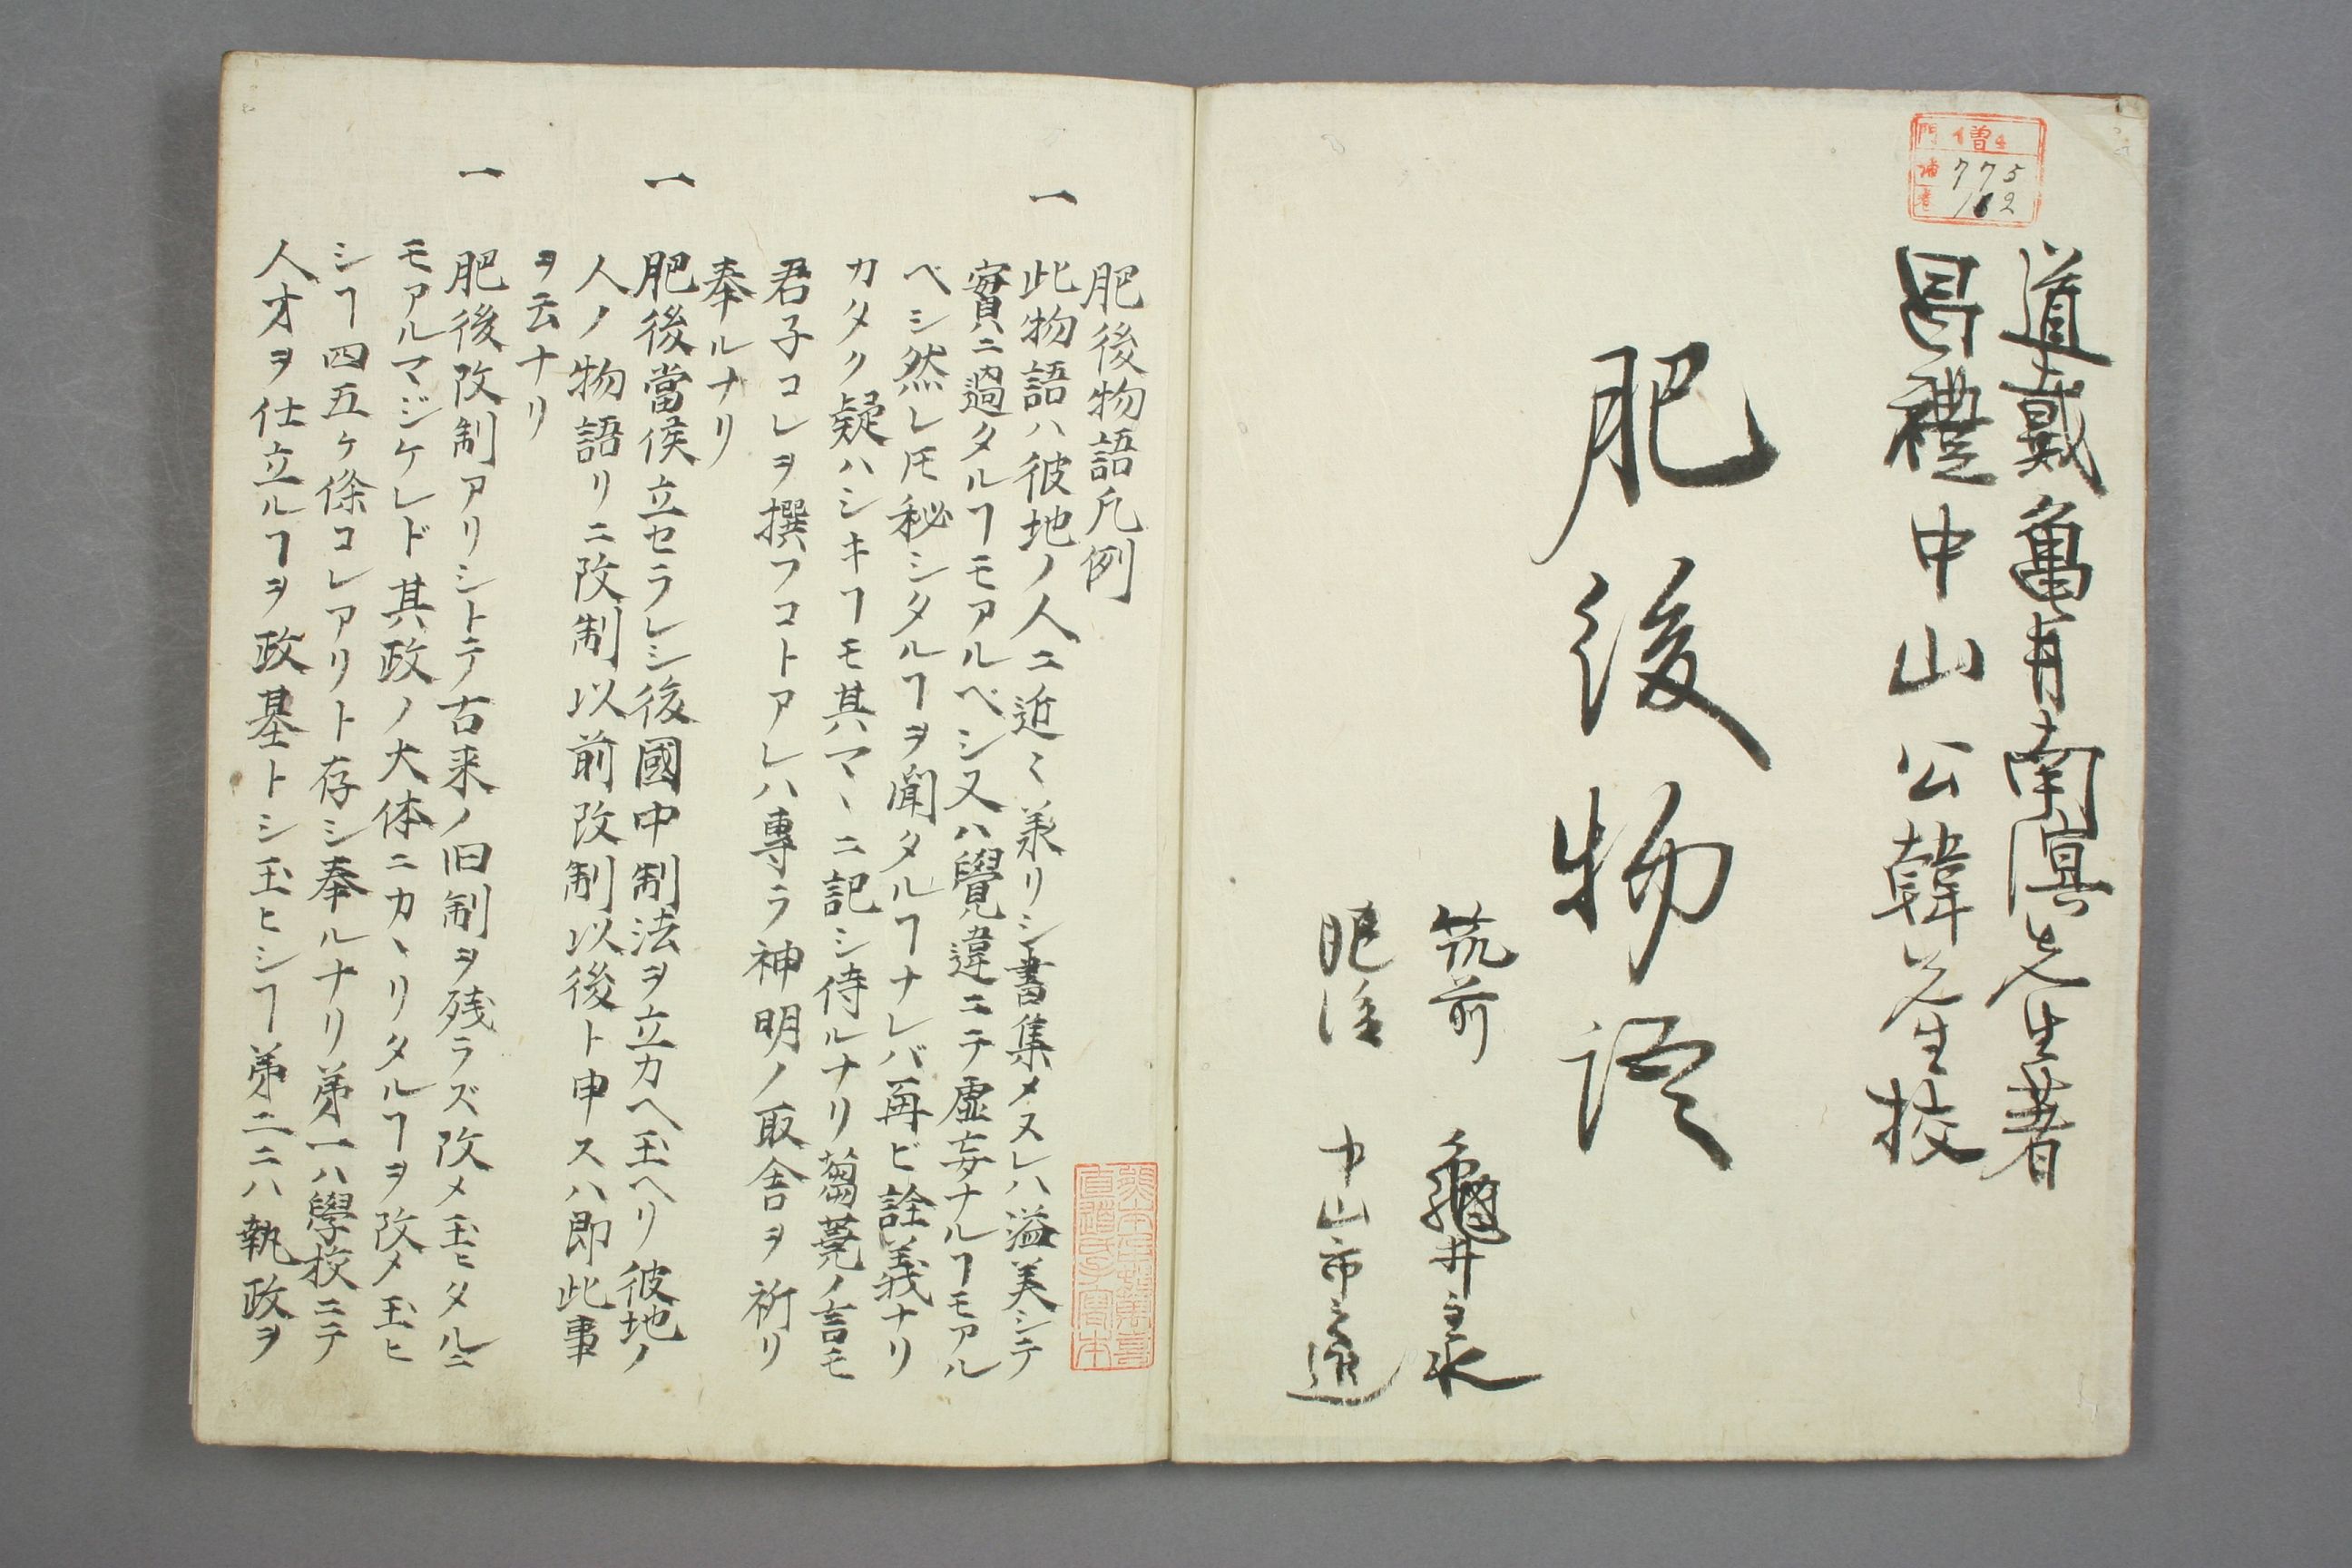 門 僧4
775
162
道戴亀井南溟先生著
昌禮中山公韓先生校
肥後物語
筑前 龜井主水
肥後 中山市之進
肥後物語凡例
一 此物語ハ彼地ノ人ニ近〻承リシ書集メヌレハ溢美シテ
實ニ過タルヿモアルベシ又ハ覺違ニテ虚妄ナルヿモアル
ベシ然レ𪜈秘シタルヿヲ聞タルヿナレバ再ビ詮義ナリ
カタク疑ハシキヿモ其マヽニ記シ侍ルナリ蒭蕘ノ言モ
君子コレヲ撰フコトアレハ專ラ神明ノ取舎ヲ祈リ
奉ルナリ
一 肥後當侯立セラレシ後國中制法ヲ立カヘ玉ヘリ彼地ノ
人ノ物語リニ改制以前改制以後ト申スハ即此事
ヲ云ナリ
一 肥後改制アリシトテ古来ノ旧制ヲ残ラズ改メ玉ヒタルニ
モアルマジケレド其政ノ大体ニカヽリタルヿヲ改メ玉ヒ
シヿ四五ヶ條コレアリト存シ奉ルナリ第一ハ學校ニテ
人才ヲ仕立ルヿヲ政基トシ玉ヒシヿ第二ニハ執政ヲ